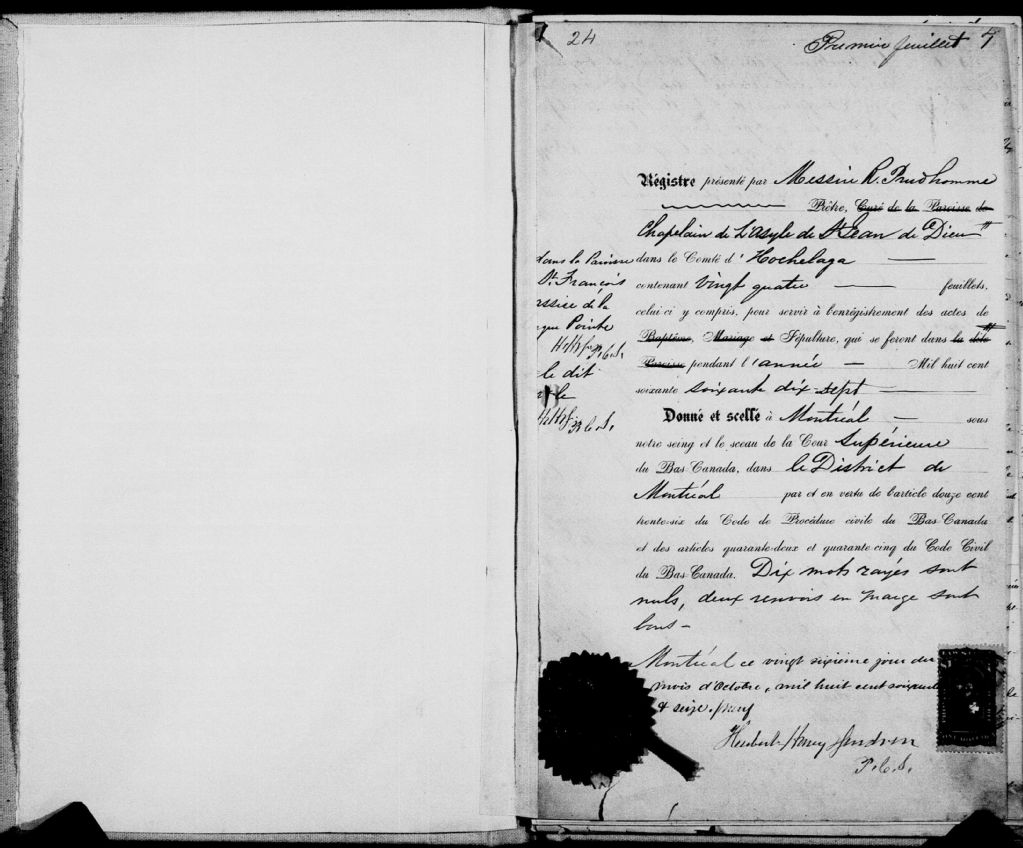 24
Premier feuillet
Régistre présenté par Messire R. Prudhomme
Prêtre, Curé de la Paroisse de
Chapelain de L'asyle de St Jean de Dieu
dans la Paroisse
dans le Comté d'Hochelaga
St. François
contenant vingt quatre feuillets,
de la
celui-ci y compris, pour servir à l'enrégistrement des actes de
Pointe
Baptême, Mariage et Sépulture, qui se feront dans la dite
P.C.S.
Paroisse pendant l'année Mil huit cent
le dit
soixante soixante dix-sept
le
Donné et scellé à Montréal sous
notre seing et le sceau de la Cour Supérieure
du Bas-Canada, dans le District de
Montréal par et en vertu de l'article douze cent
trente-six du Code de Procédure civile du Bas-Canada
et des articles quarante-deux et quarante-cinq du Code Civil
du Bas-Canada. Dix mots rayés sont
nuls, deux renvois en marge sont
bons -
Montréal ce vingt sixième jour du
mois d'Octobre, mil huit cent soixante
& seize.
P.C.S.